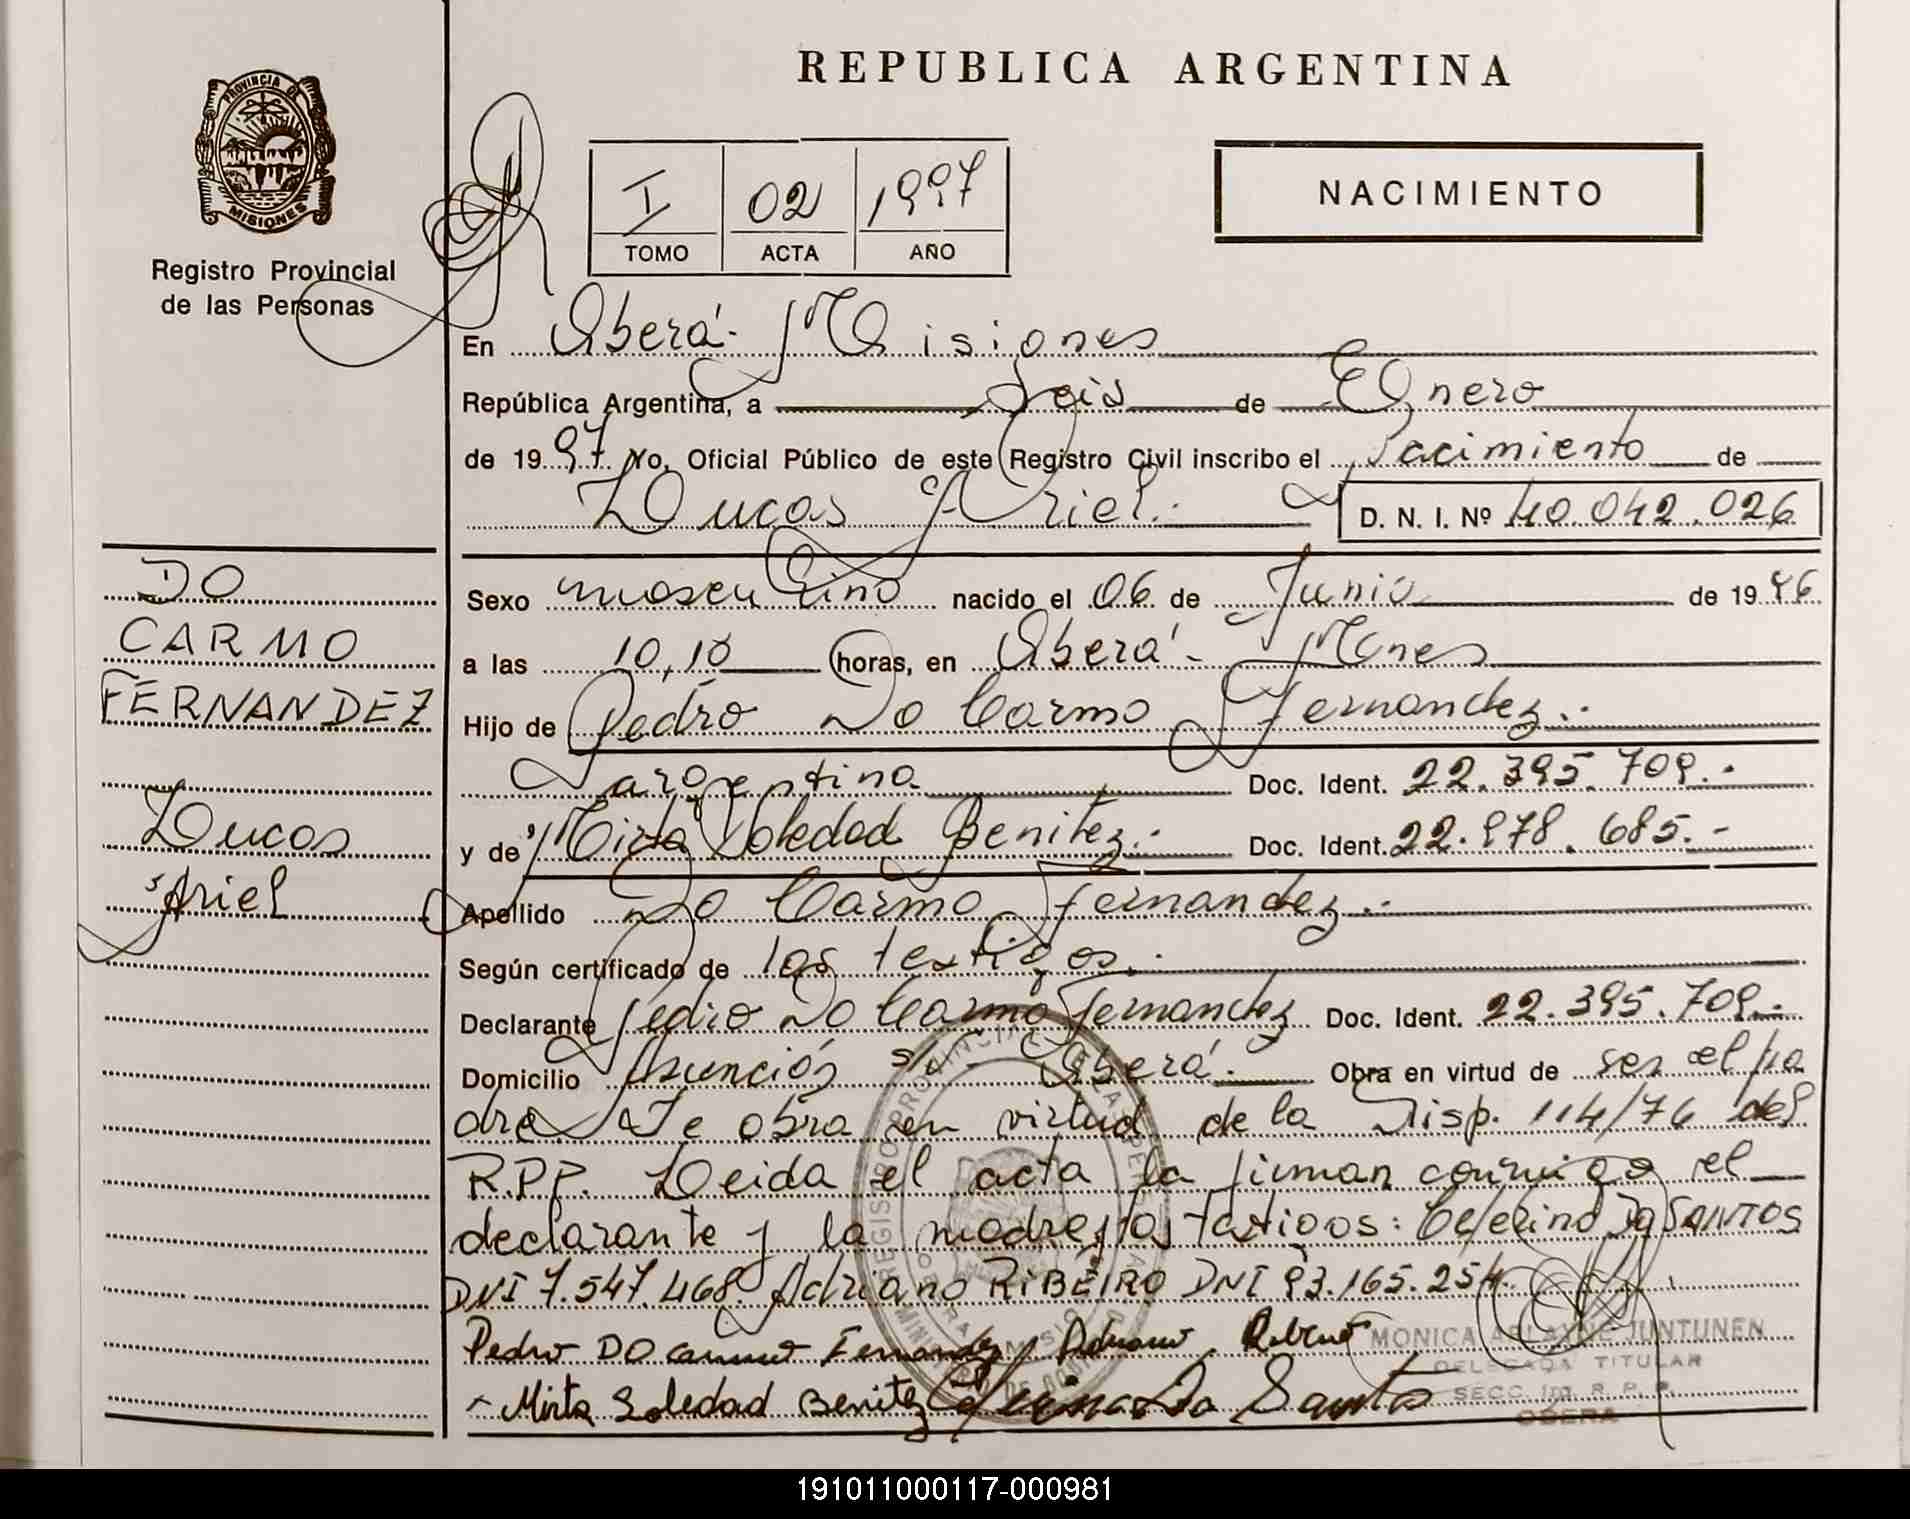 REPUBLICA ARGENTINA
PROVINCIA DE
MISIONES
Registro Provincial
de las Personas
I 02 1997
TOMO ACTA AÑO
NACIMIENTO
En Oberá - Misiones
República Argentina, a Seis de Enero
de 1997. Yo, Oficial Público de este Registro Civil inscribo el Nacimiento de
Lucas Ariel.- D. N. I. Nº 40.042.026
DO
CARMO
FERNANDEZ
Lucas
Ariel
Sexo masculino nacido el 06 de Junio de 1996
a las 10,10 horas, en Oberá - Mnes
Hijo de Pedro Do Carmo Fernandez.-
argentina Doc. Ident. 22.395.709.-
y de Mirta Soledad Benitez.- Doc. Ident. 22.978.685.-
Apellido Do Carmo Fernandez.-
Según certificado de los testigos.-
Declarante Pedro Do Carmo Fernandez Doc. Ident. 22.395.709.-
Domicilio Asunción s/n - Oberá.- Obra en virtud de ser el pa
dre Se obra en virtud de la Disp. 114/76 del
R.P.P. Leida el acta la firman conmigo el
declarante y la madre y los testigos: Ceferino Do SANTOS
DNI 7.547.468 Adriano RIBEIRO DNI 93.165.254.
Pedro DO carmo Fernandez Adriano Ribeiro
Mirta Soledad Benitez Do Santos
MONICA JUNTUNEN
DELEGADA TITULAR
SECC. 1ra R. P. P.
OBERA
191011000117-000981